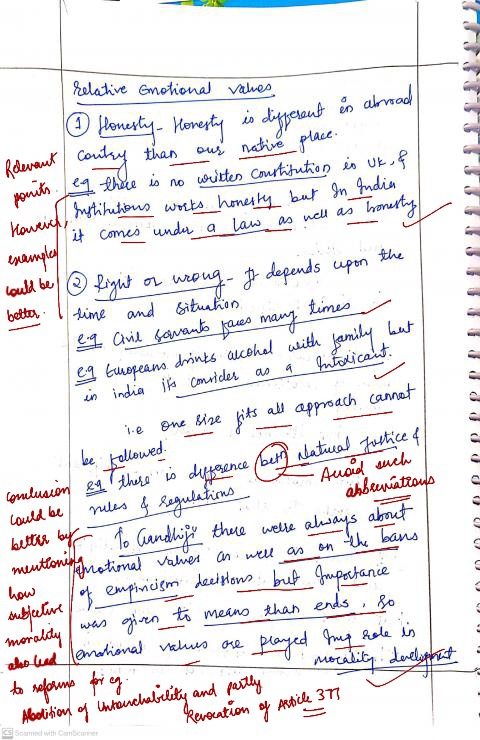 Relative emotional values
① Honesty - Honesty is different in abroad
contry than our native place.
e.g there is no written constitution in UK, &
Institutions works honesty but In India
it comes under a law as well as honesty
Relevant
points.
However,
examples
could be
better.
② Right or wrong - It depends upon the
time and situation
e.g Civil servants faces many times
e.g Europeans drinks alcohol with family but
in india its consider as a Intoxicant.
i.e one size fits all approach cannot
be followed.
e.g there is difference betn Natural Justice &
rules & regulations
Avoid such
abbreviations
To Gandhiji there were always about
emotional values as well as on the basis
of empiricism decisions but Importance
was given to means than ends. So
emotional values are played Imp role in
morality development
Conclusion
could be
better by
mentioning
how
subjective
morality
also lead
to reforms for eg.
Abolition of Untouchability and partly
Revocation of Article 377
CS Scanned with CamScanner